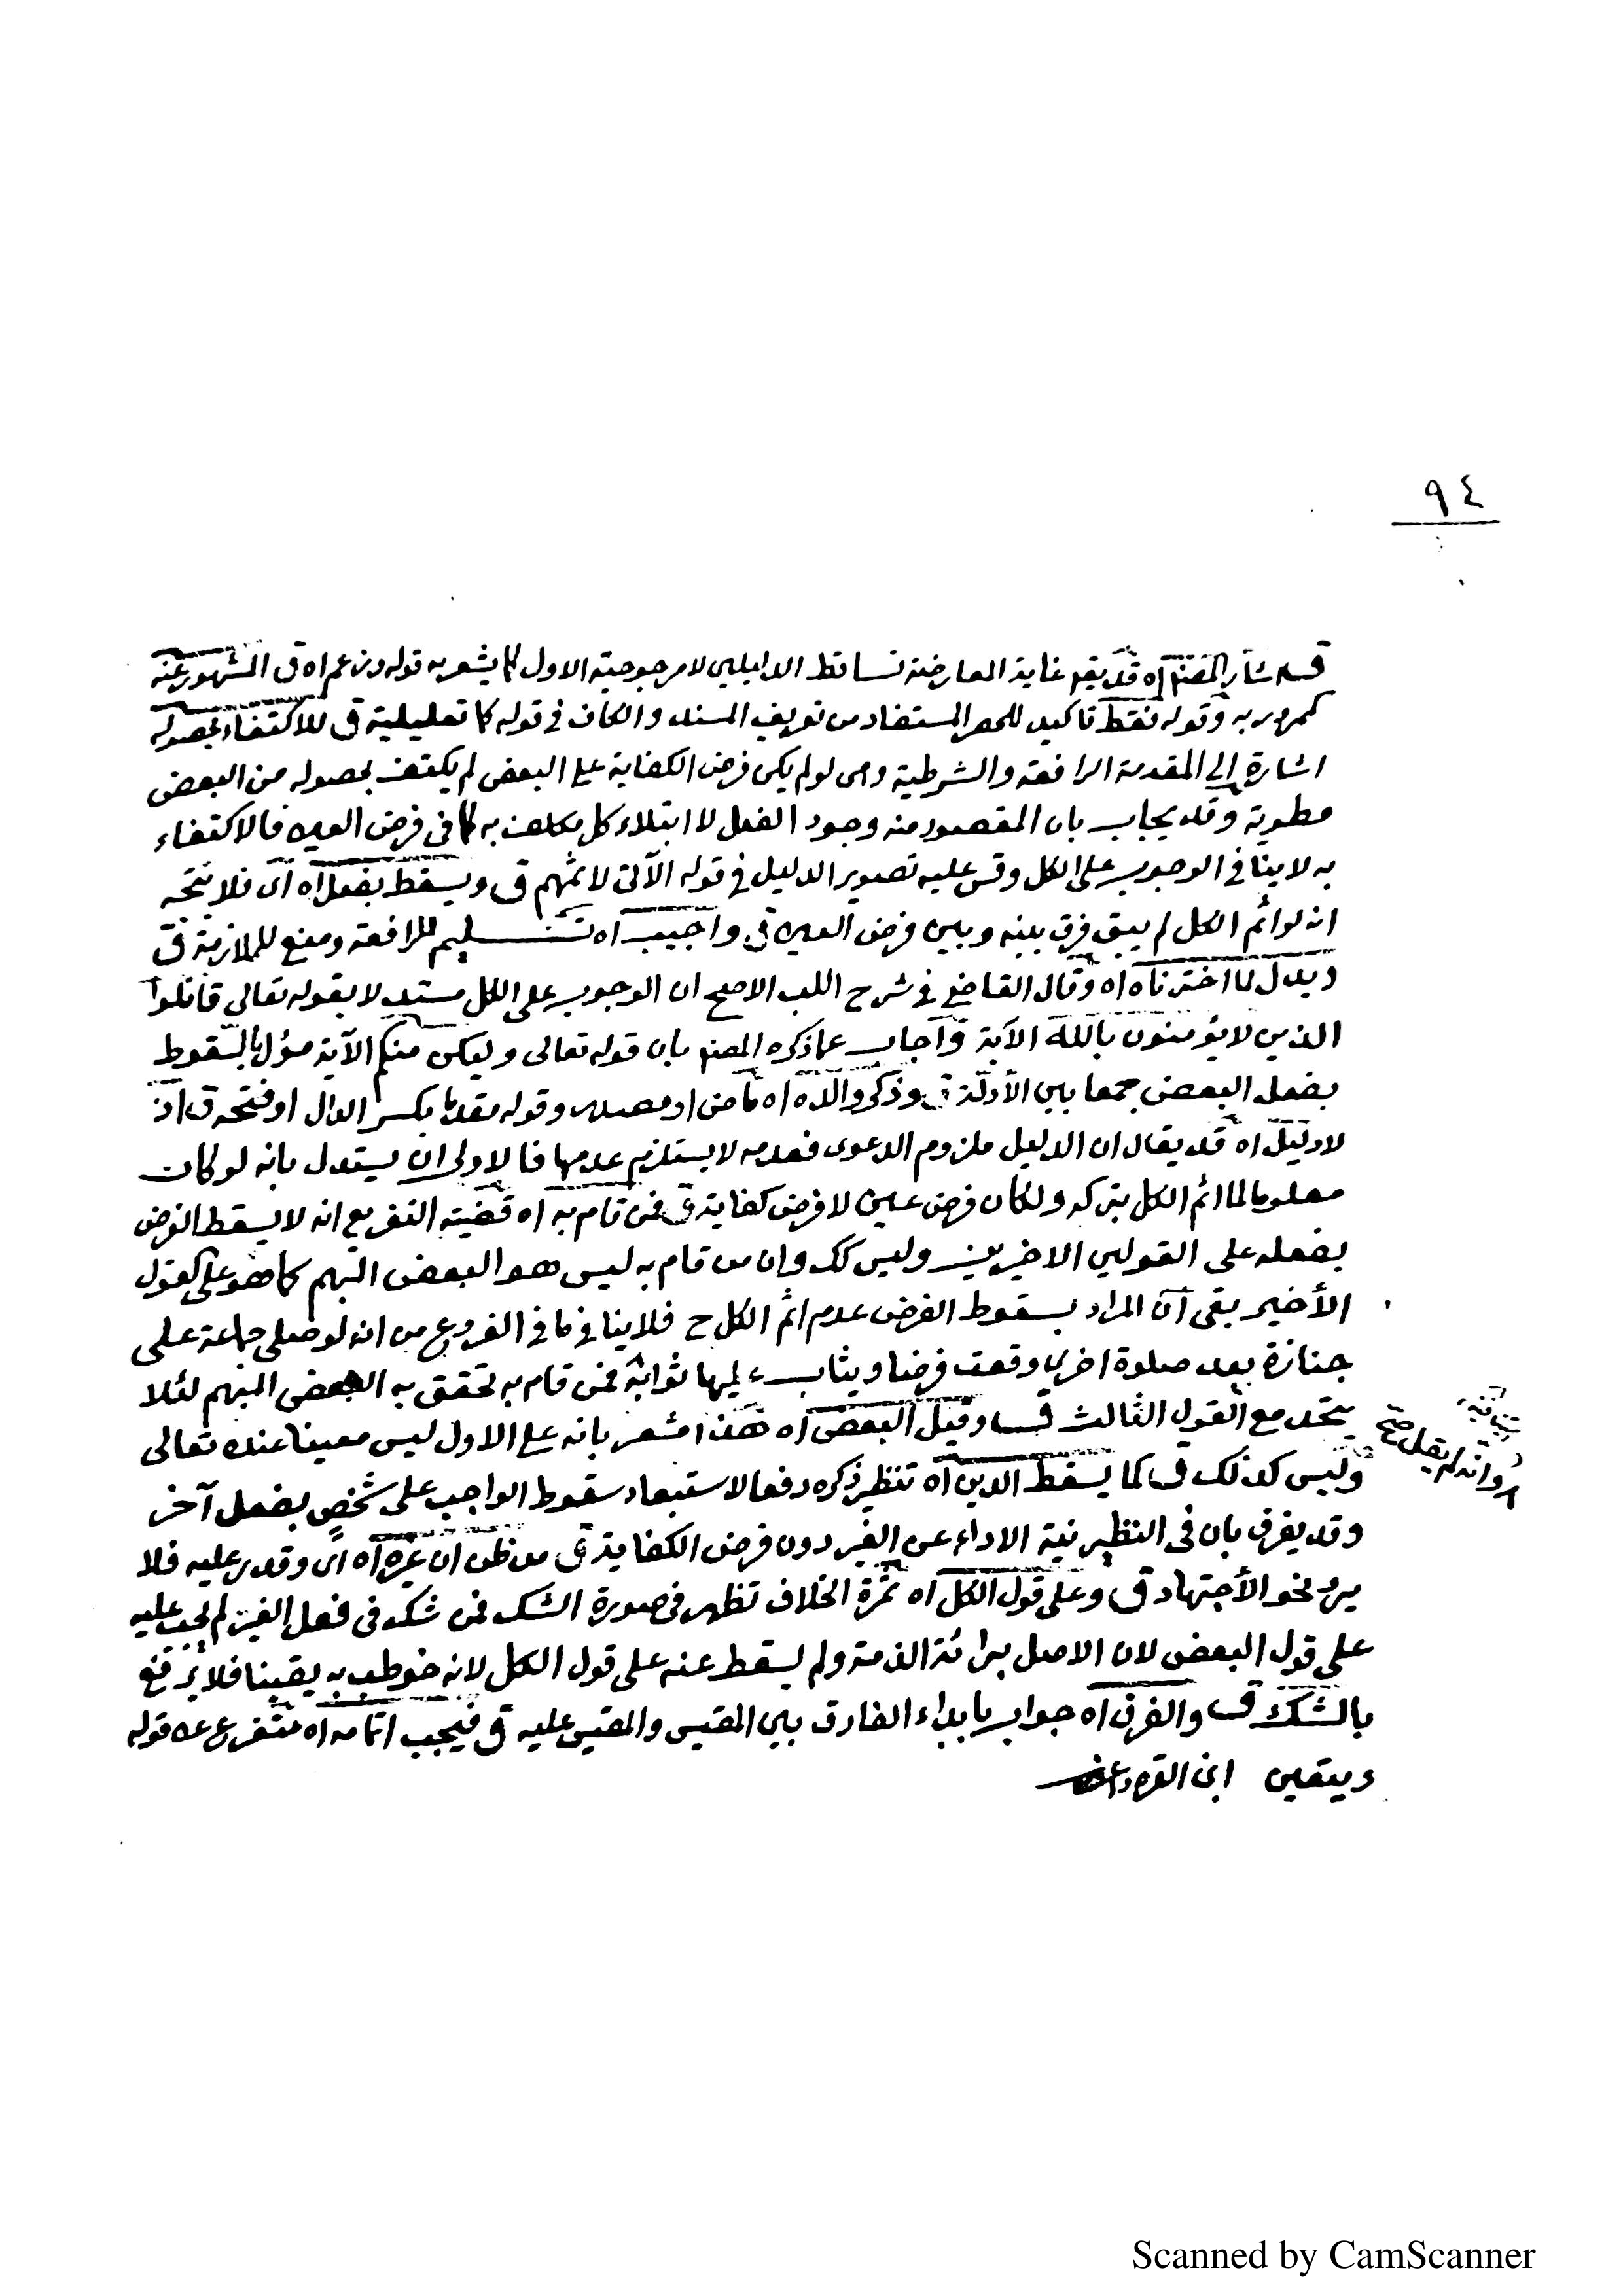 ٩٤
قوله اشار المصنف اه قد يقم غاية المعارضة تساقط الدليلين لا مرجوحية الاول كما يشعر به قوله وزعم اه ق المشهور عنه
كمرور به وقوله فقط تاكيد للحصر المستفاد من تعريف المسند والكاف في قوله كما تعليلية ق للاكتفاء بحصوله
اشارة الى المقدمة الرافعة والشرطية وهى لو لم يكن فرض الكفاية على البعض لم يكتف بحصوله من البعض
مطوية وقد يجاب بان المقصود منه وجود الفعل لا ابتلاء كل مكلف به كما في فرض العين فالاكتفاء
به لا ينافي الوجوب على الكل وقس عليه تصوير الدليل في قوله الآتى لاثمهم ق ويسقط بفعل اه اى فلا يتجه
انه لو اثم الكل لم يبق فرق بينه وبين فرض العين ق واجيب اه تسليم للرافعة ومنع للملازمة ق
ويدل لما اخترناه اه وقال القاضي في شرح اللب الاصح ان الوجوب على الكل مستدلا بقوله تعالى قاتلوا
الذين لا يؤمنون بالله الآية واجاب عما ذكره المصنف بان قوله تعالى ولتكن منكم الآية مؤل بالسقوط
بفعل البعض جمعا بين الأدلة ق وذكر والده اه ماض او مصدر وقوله مقدما بكسر الدال او فتحه ق اذ
لا دليل اه قد يقال ان الدليل ملزوم الدعوى فعدمه لا يستلزم عدمها فالاولى ان يستدل بانه لو كان
معلوما لما اثم الكل بتركه ولكان فرض عين لا فرض كفاية ق فمن قام به اه قضية التفريع انه لا يسقط الفرض
بفعله على القولين الاخيرين وليس كك وان من قام به ليس هو البعض المبهم كما هو على القول
الأخير بقى ان المراد بسقوط الفرض عدم اثم الكل ح فلا ينافي ما في الفروع من انه لو صلى جماعة على
جنازة بعد صلوة اخرى وقعت فرضا ويثاب عليها ثوابه فمن قام به تحقق به البعض المبهم لئلا
يتحد مع القول الثالث ق وقيل البعض اه هذا مشعر بانه على الاول ليس معينا عنده تعالى
وليس كذلك ق كما يسقط الدين اه تنظير ذكره دفعا لاستبعاد سقوط الواجب على شخص بفعل آخر
وقد يفرق بان فى النظير نية الاداء عن الغير دون فرض الكفاية ق من ظن ان غيره اه اى وقدر عليه فلا
يرد نحو الأجتهاد ق وعلى قول الكل اه ثمرة الخلاف تظهر في صورة الشك فمن شك في فعل الغير لم يجب عليه
على قول البعض لان الاصل برائة الذمة ولم يسقط عنه على قول الكل لانه خوطب به يقينا فلا يرفع
بالشك ق والفرق اه جواب بابداء الفارق بين المقيس والمقيس عليه ق فيجب اتمامه اه متفرع على قوله
ويتعين ابن القره داغى
وانه لم يقل صح